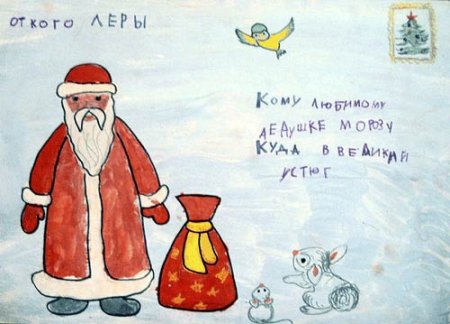 ОТ КОГО ЛЕРЫ
Кому ЛЮБИМОМУ
ДЕДУШКЕ МОРОЗУ
КУДА В ВЕЛИКИЙ
УСТЮГ